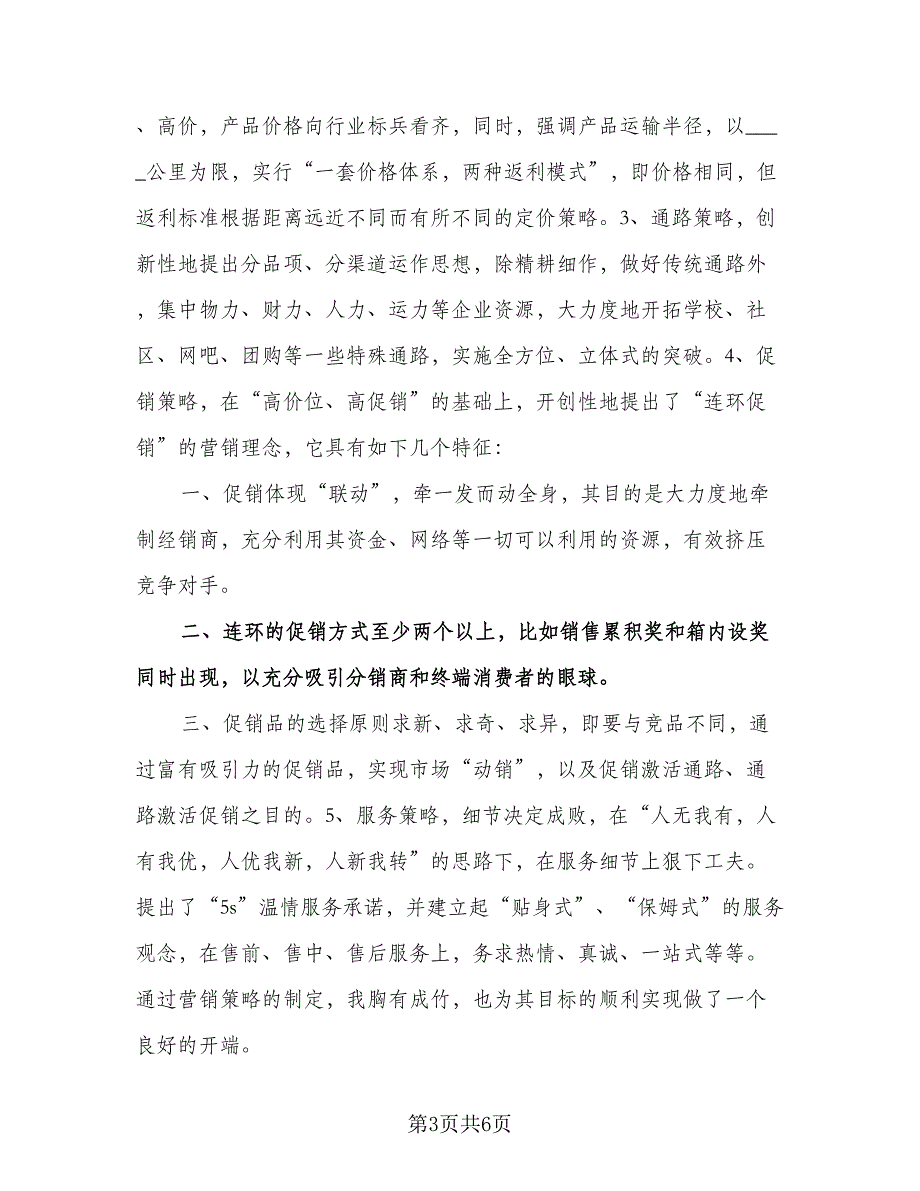 、高价，产品价格向行业标兵看齐，同时，强调产品运输半径，以___
_公里为限，实行“一套价格体系，两种返利模式”，即价格相同，但
返利标准根据距离远近不同而有所不同的定价策略。3、通路策略，创
新性地提出分品项、分渠道运作思想，除精耕细作，做好传统通路外
，集中物力、财力、人力、运力等企业资源，大力度地开拓学校、社
区、网吧、团购等一些特殊通路，实施全方位、立体式的突破。4、促
销策略，在“高价位、高促销”的基础上，开创性地提出了“连环促
销”的营销理念，它具有如下几个特征：
一、促销体现“联动”，牵一发而动全身，其目的是大力度地牵
制经销商，充分利用其资金、网络等一切可以利用的资源，有效挤压
竞争对手。
二、连环的促销方式至少两个以上，比如销售累积奖和箱内设奖
同时出现，以充分吸引分销商和终端消费者的眼球。
三、促销品的选择原则求新、求奇、求异，即要与竞品不同，通
过富有吸引力的促销品，实现市场“动销”，以及促销激活通路、通
路激活促销之目的。5、服务策略，细节决定成败，在“人无我有，人
有我优，人优我新，人新我转”的思路下，在服务细节上狠下工夫。
提出了“5s”温情服务承诺，并建立起“贴身式”、“保姆式”的服务
观念，在售前、售中、售后服务上，务求热情、真诚、一站式等等。
通过营销策略的制定，我胸有成竹，也为其目标的顺利实现做了一个
良好的开端。
第3页共6页